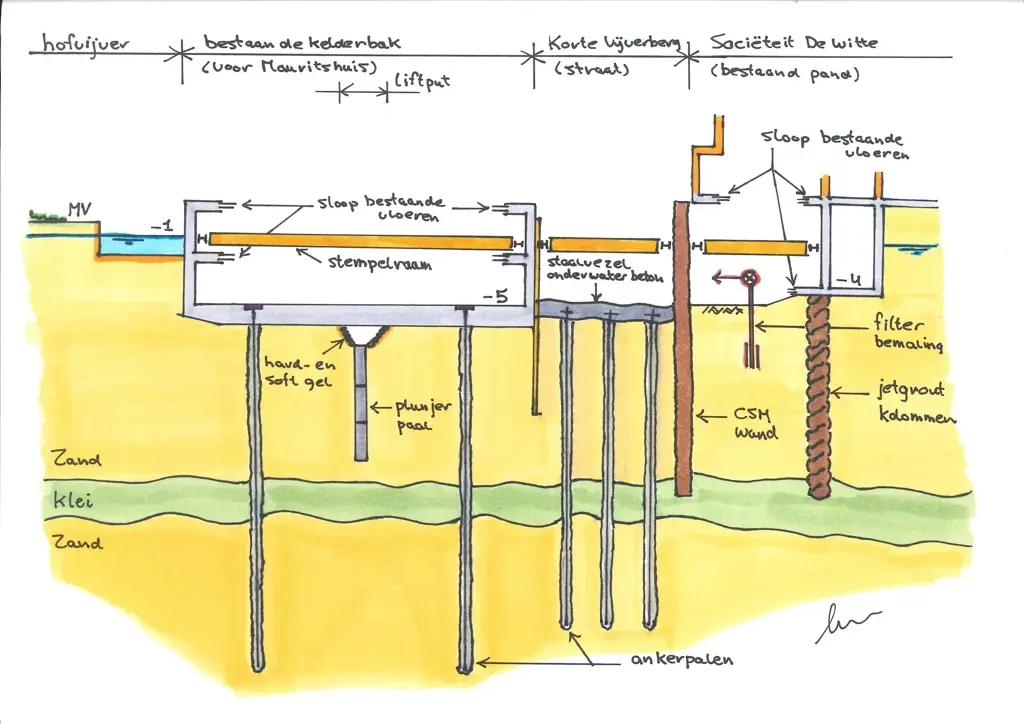 hofvijver
bestaande kelderbak
(voor Mauritshuis)
liftput
Korte Vijverberg
(straat)
Sociëteit De Witte
(bestaand pand)
sloop bestaande
vloeren
MV
-1
sloop bestaande
vloeren
stempelraam
staalvezel
onderwaterbeton
-5
-4
filter
bemaling
hard- en
soft gel
plunjer
paal
CSM
wand
jetgrout
kolommen
Zand
klei
Zand
ankerpalen